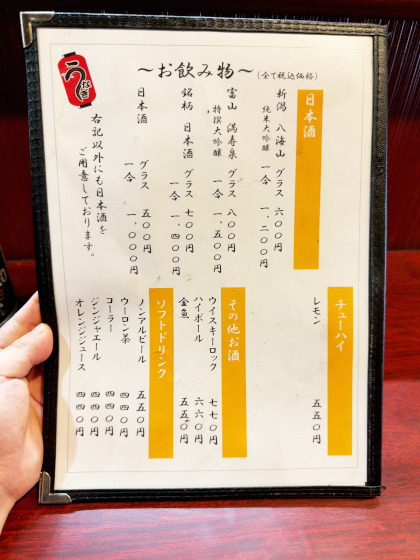 うなぎ
～お飲み物～(全て税込価格)
日本酒
新潟 八海山 グラス 六〇〇円
純米大吟醸 一合 一、二〇〇円
富山 満寿泉 グラス 八〇〇円
特撰大吟醸 一合 一、五〇〇円
銘柄 日本酒 グラス 七〇〇円
一合 一、四〇〇円
日本酒 グラス 五〇〇円
一合 一、〇〇〇円
右記以外にも日本酒を
ご用意しております。
チューハイ
レモン 五五〇円
その他お酒
ウイスキーロック 七七〇円
ハイボール 六六〇円
金魚 五五〇円
ソフトドリンク
ノンアルビール 五五〇円
ウーロン茶 四四〇円
コーラー 四四〇円
ジンジャエール 四四〇円
オレンジジュース 四四〇円